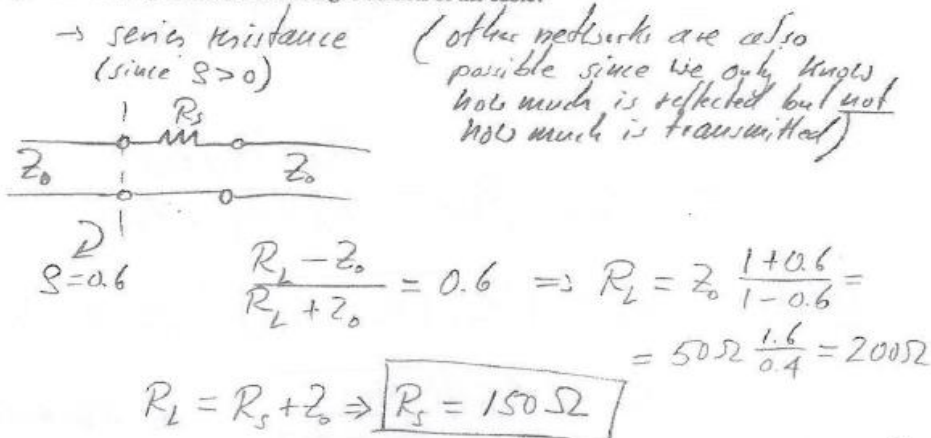 → series resistance
(since ρ>0)
(other networks are also
possible since we only know
how much is reflected but not
how much is transmitted)
R_S
Z_0 Z_0
ρ=0.6
(R_L - Z_0)/(R_L + Z_0) = 0.6 ⇒ R_L = Z_0 (1+0.6)/(1-0.6) =
= 50Ω 1.6/0.4 = 200Ω
R_L = R_S + Z_0 ⇒ R_S = 150Ω